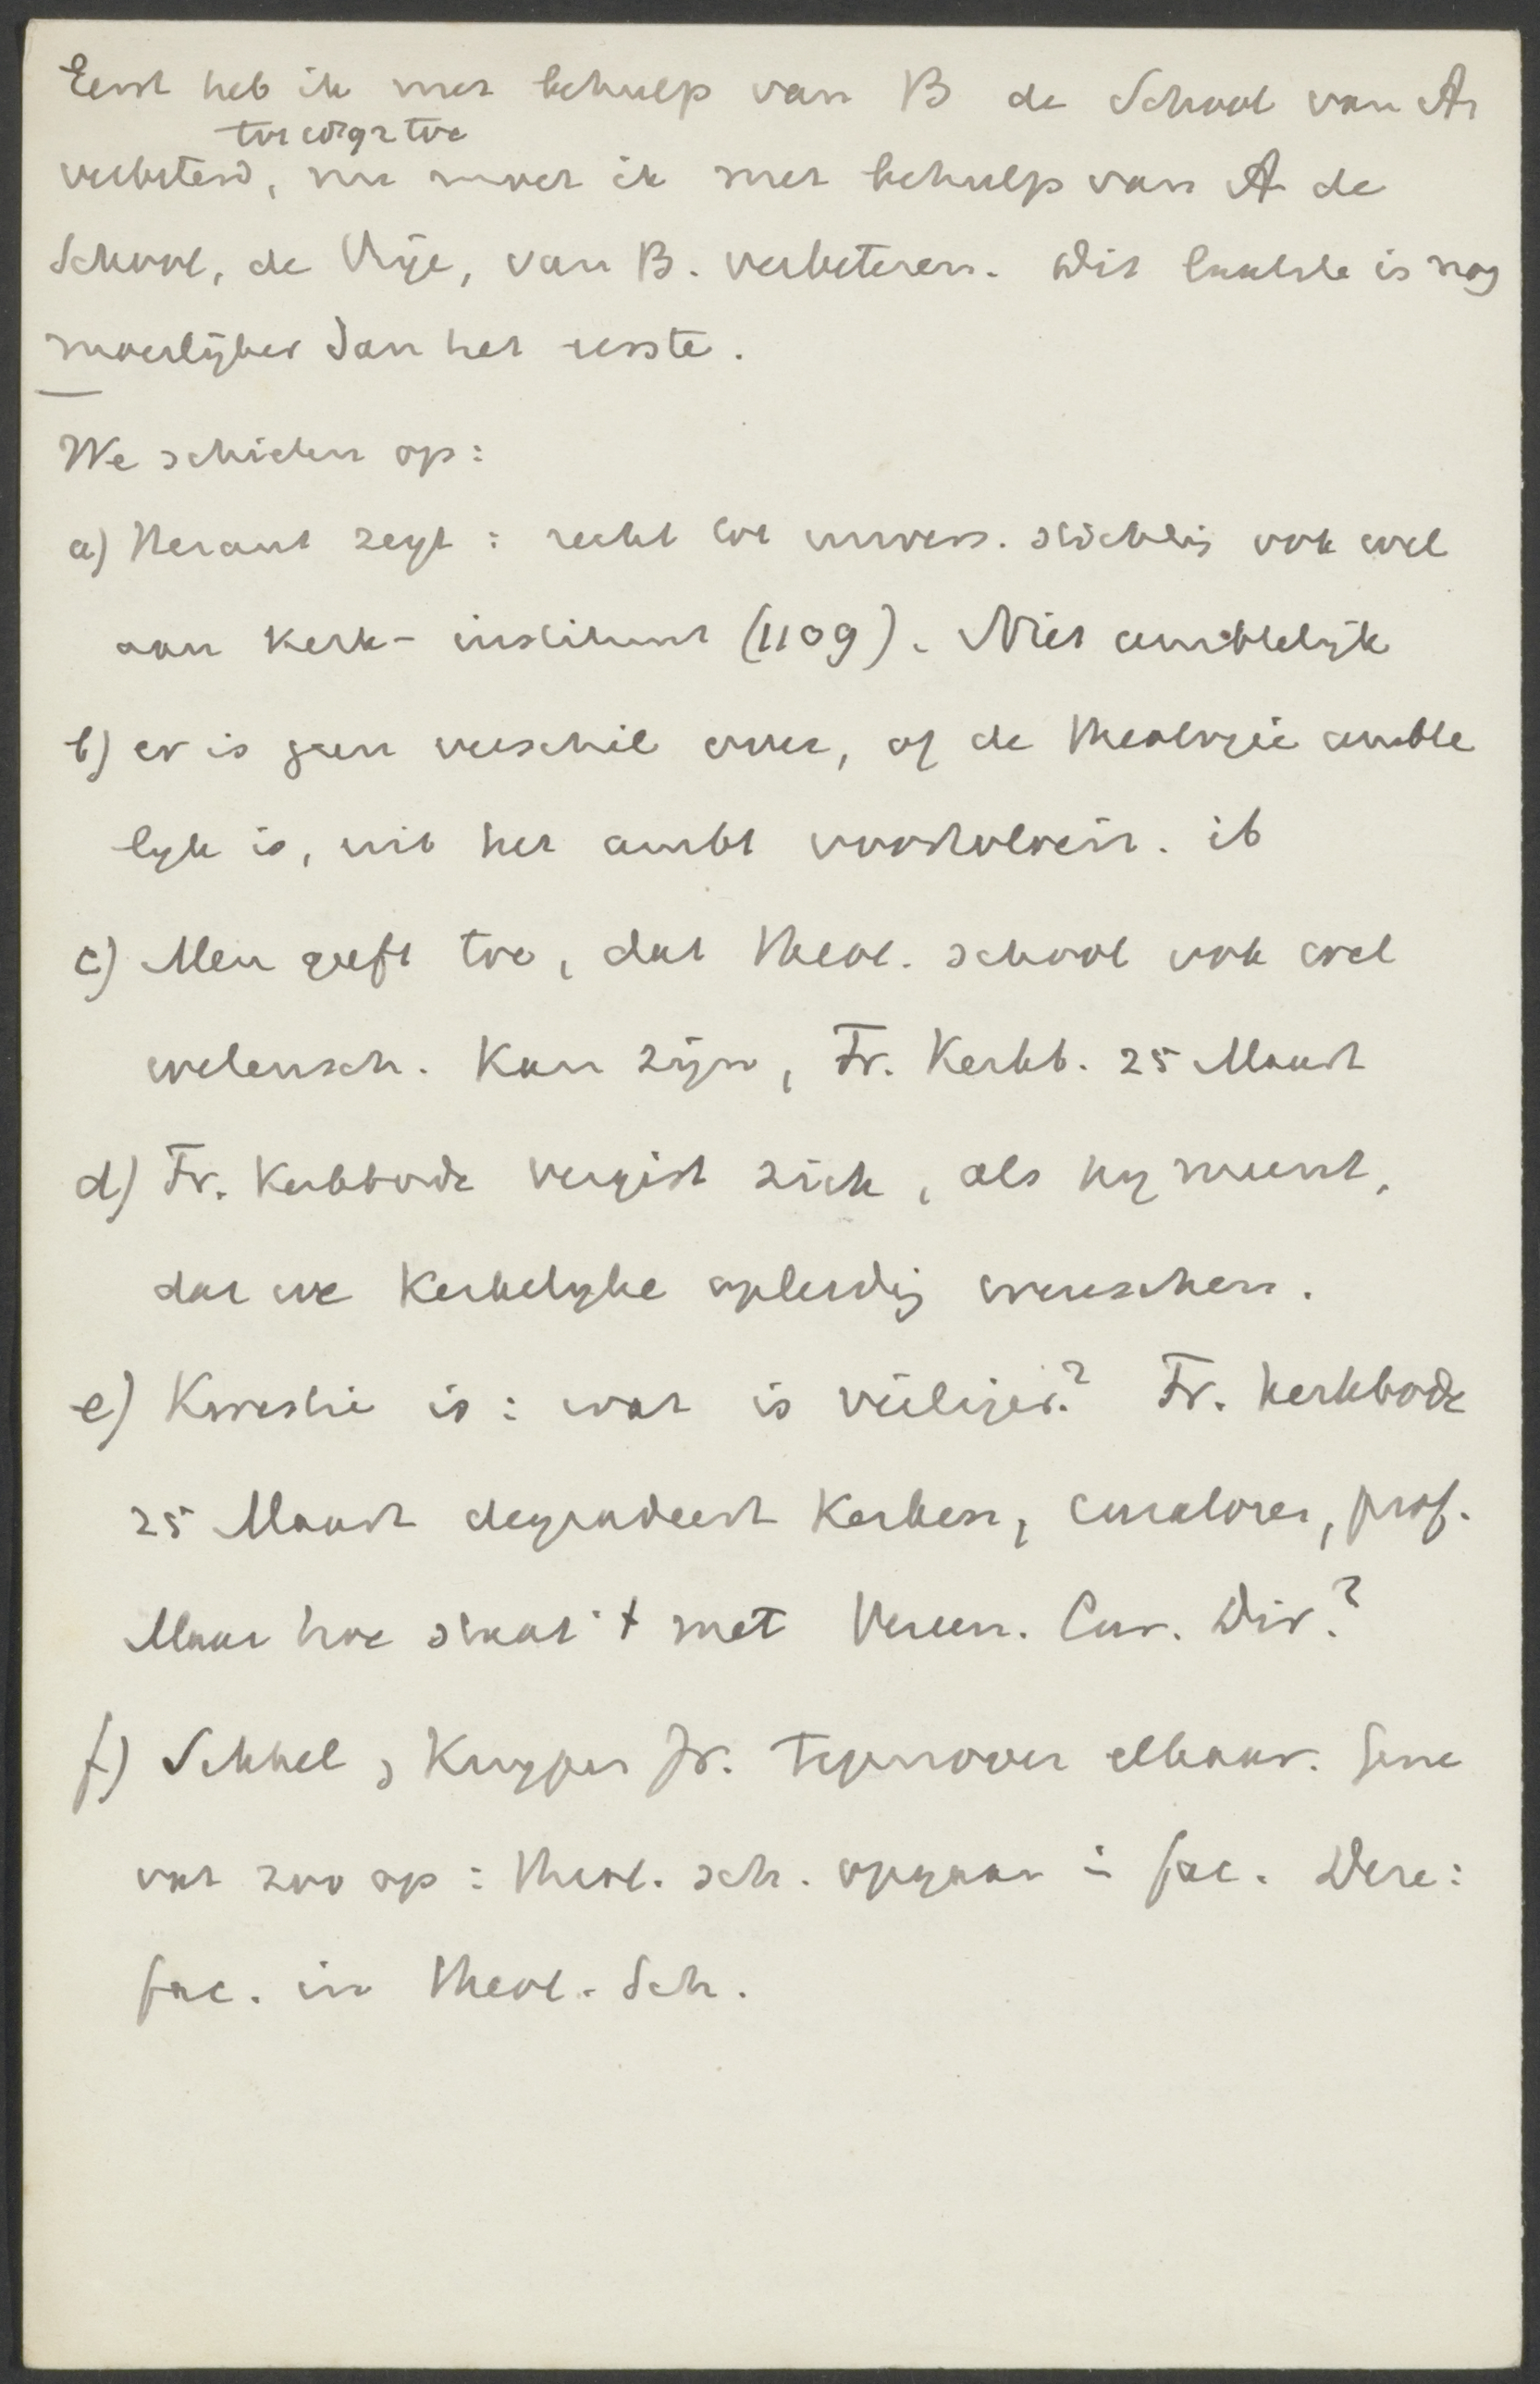 Eerst heb ik met behulp van B de School van A
tot corga toe
verbeterd, nu moet ik met behulp van A de
School, de Vrije, van B. verbeteren. Dit laatste is nog
moeilijker dan het eerste.
We schieten op:
a) Heraut zegt: recht tot univers. stichtig ook wel
aan Kerk-instituut (1109). Niet ambtelijk
b) er is geen verschil over, of de theologie ambte
lijk is, uit het ambt voortvloeit. ib
c) Men geeft toe, dat theol. school ook wel
wetensch. kan zijn, Fr. Kerkb. 25 Maart
d) Fr. Kerkbode vergist zich, als hij meent,
dat we Kerkelijke opleidig wenschen.
e) Kwestie is: wat is veiliger? Fr. Kerkbode
25 Maart degradeert Kerken, curatoren, prof.
Maar hoe staat 't met Vereen. Cur. Dir.?
f) Sikkel, Kuyper Jr. tegenover elkaar. Gene
vat zoo op: theol. sch. opgaan in fac. Deze:
fac. in theol. Sch.